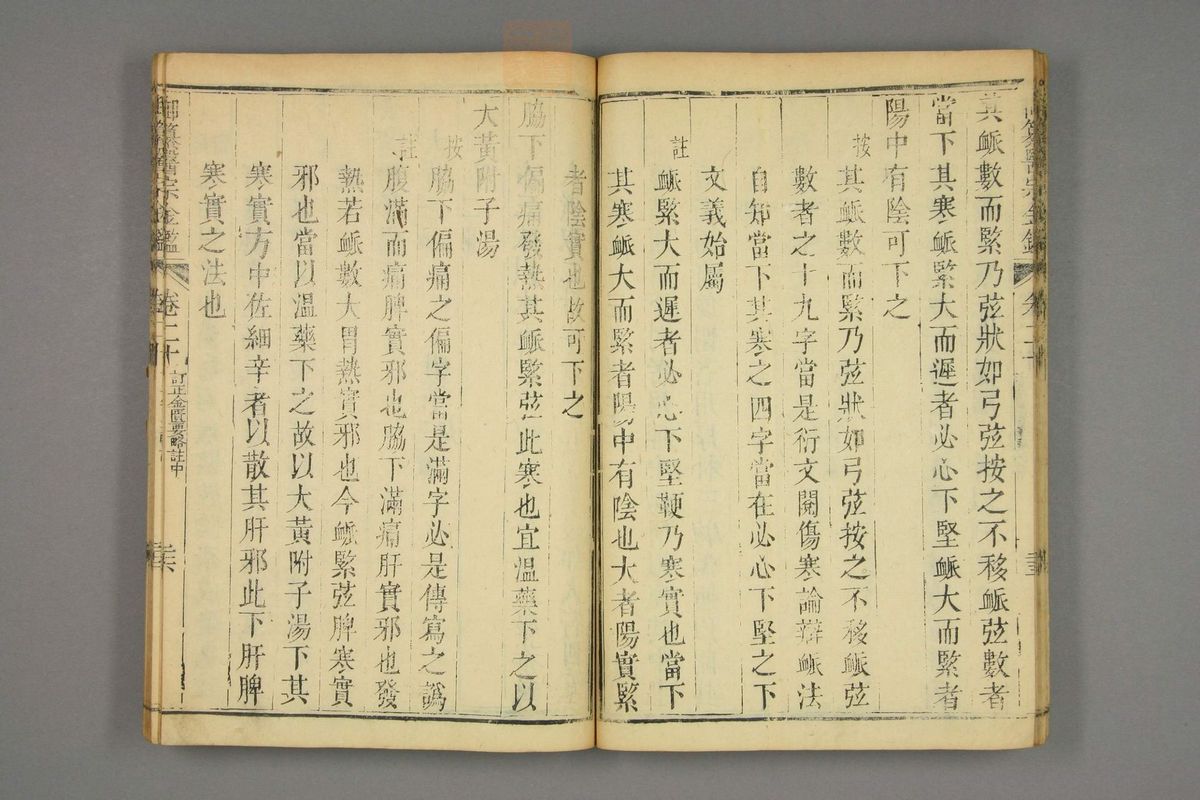 御纂醫宗金鑑 卷二十
其脈數而緊乃弦狀如弓弦按之不移脈弦數者
當下其寒脈緊大而遲者必心下堅脈大而緊者
陽中有陰可下之
按 其脈數而緊乃弦狀如弓弦按之不移脈弦
數者之十九字當是衍文閱傷寒論辯脈法
自知當下其寒之四字當在必心下堅之下
文義始屬
註 脈緊大而遲者必心下堅鞕乃寒實也當下
其寒脈大而緊者陽中有陰也大者陽實緊
者陰實也故可下之
脇下偏痛發熱其脈緊弦此寒也宜溫藥下之以
大黃附子湯
按 脇下偏痛之偏字當是滿字必是傳寫之譌
註 腹滿而痛脾實邪也脇下滿痛肝實邪也發
熱若脈數大胃熱實邪也今脈緊弦脾寒實
邪也當以溫藥下之故以大黃附子湯下其
寒實方中佐細辛者以散其肝邪此下肝脾
寒實之法也
御纂醫宗金鑑 卷二十 訂正金匱要略註中